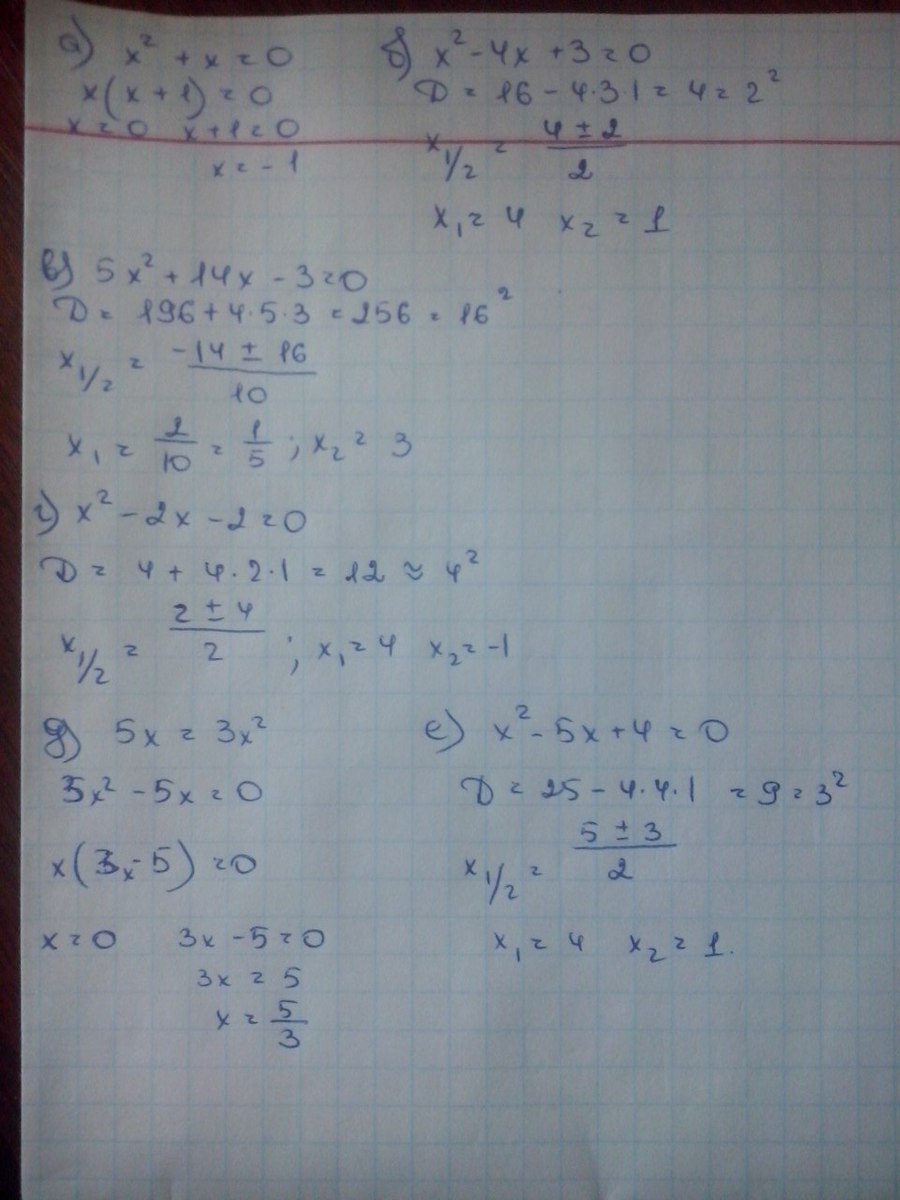 а) x² + x = 0
x(x + 1) = 0
x = 0 x + 1 = 0
x = -1
б) x² - 4x + 3 = 0
D = 16 - 4·3·1 = 4 = 2²
x₁/₂ = (4 ± 2)/2
x₁ = 4 x₂ = 1
в) 5x² + 14x - 3 = 0
D = 196 + 4·5·3 = 256 = 16²
x₁/₂ = (-14 ± 16)/10
x₁ = 2/10 = 1/5 ; x₂ = 3
г) x² - 2x - 2 = 0
D = 4 + 4·2·1 = 12 ≈ 4²
x₁/₂ = (2 ± 4)/2 ; x₁ = 4 x₂ = -1
д) 5x = 3x²
3x² - 5x = 0
x(3x - 5) = 0
x = 0 3x - 5 = 0
3x = 5
x = 5/3
е) x² - 5x + 4 = 0
D = 25 - 4·4·1 = 9 = 3²
x₁/₂ = (5 ± 3)/2
x₁ = 4 x₂ = 1.